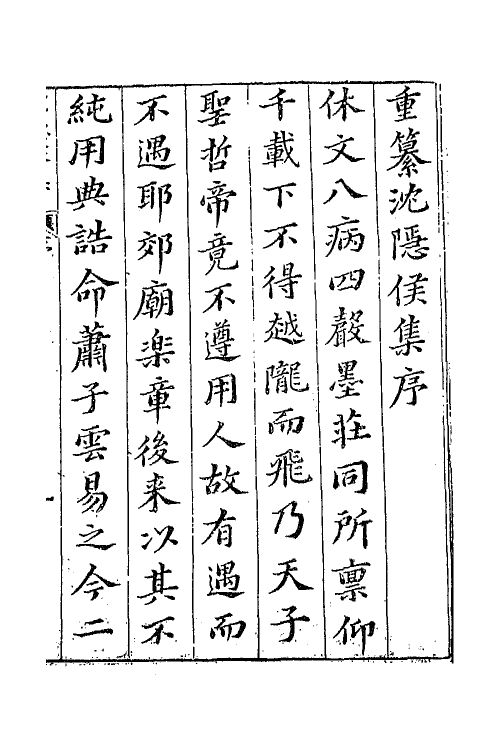 重纂沈隱侯集序
休文八病四聲墨莊同所禀仰
千載下不得越隴而飛乃天子
聖哲帝竟不遵用人故有遇而
不遇耶郊廟楽章後来以其不
純用典誥命蕭子雲易之今二